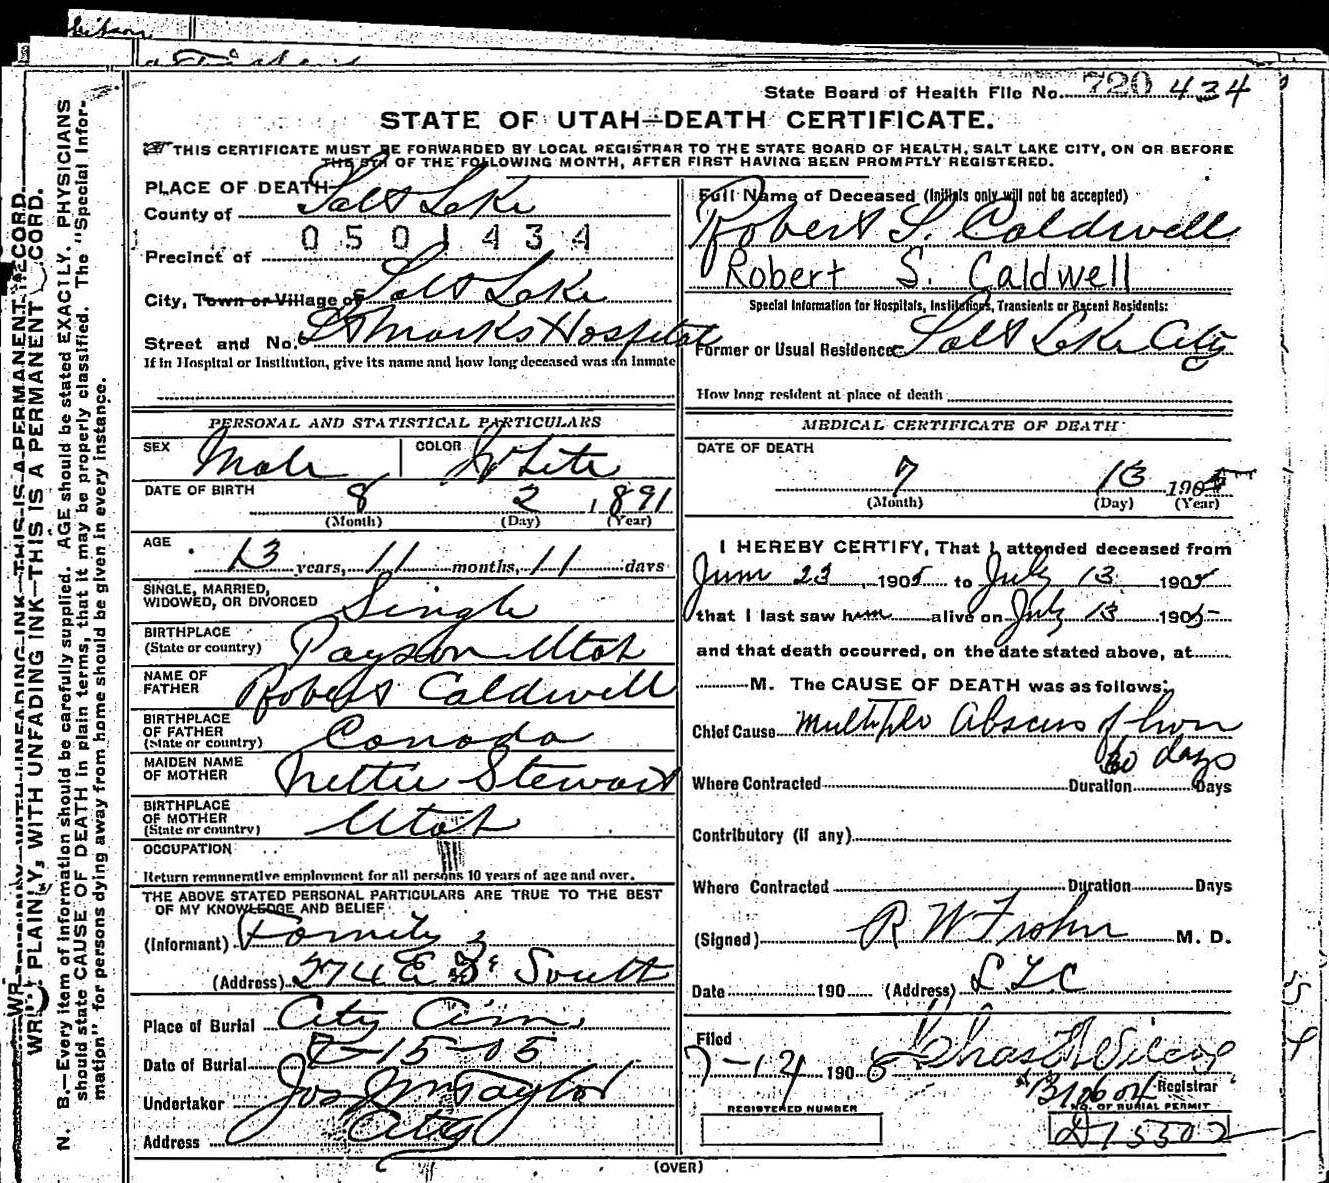 State Board of Health File No. 720 434
STATE OF UTAH—DEATH CERTIFICATE.
THIS CERTIFICATE MUST BE FORWARDED BY LOCAL REGISTRAR TO THE STATE BOARD OF HEALTH, SALT LAKE CITY, ON OR BEFORE
THE 5TH OF THE FOLLOWING MONTH, AFTER FIRST HAVING BEEN PROMPTLY REGISTERED.
WRITE PLAINLY, WITH UNFADING INK—THIS IS A PERMANENT RECORD.
N. B.—Every item of information should be carefully supplied. AGE should be stated EXACTLY. PHYSICIANS
should state CAUSE OF DEATH in plain terms, that it may be properly classified. The "Special Infor-
mation" for persons dying away from home should be given in every instance.
PLACE OF DEATH
County of Salt Lake
0501434
Precinct of
City, Town or Village of Salt Lake
Street and No. St Marks Hospital
If in Hospital or Institution, give its name and how long deceased was an inmate
PERSONAL AND STATISTICAL PARTICULARS
SEX Male COLOR White
DATE OF BIRTH 8 2 1891
(Month) (Day) (Year)
AGE 13 years, 11 months, 11 days
SINGLE, MARRIED,
WIDOWED, OR DIVORCED Single
BIRTHPLACE
(State or country) Payson Utah
NAME OF
FATHER Robert Caldwell
BIRTHPLACE
OF FATHER
(State or country) Canada
MAIDEN NAME
OF MOTHER Nettie Stewart
BIRTHPLACE
OF MOTHER
(State or country) Utah
OCCUPATION
Return remunerative employment for all persons 10 years of age and over.
THE ABOVE STATED PERSONAL PARTICULARS ARE TRUE TO THE BEST
OF MY KNOWLEDGE AND BELIEF
(Informant) Family
(Address) 274 E 3 South
Place of Burial City Cem.
Date of Burial 7-15-05
Undertaker Jos Wm Taylor
Address City
Full Name of Deceased (Initials only will not be accepted)
Robert S. Caldwell
Robert S. Caldwell
Special Information for Hospitals, Institutions, Transients or Recent Residents:
Former or Usual Residence Salt Lake City
How long resident at place of death
MEDICAL CERTIFICATE OF DEATH
DATE OF DEATH
7 13 1905
(Month) (Day) (Year)
I HEREBY CERTIFY, That I attended deceased from
June 23, 1905 to July 13 1905
that I last saw him alive on July 13 1905
and that death occurred, on the date stated above, at
M. The CAUSE OF DEATH was as follows:
Chief Cause Multiple Abscess of liver
days
Where Contracted Duration Days
Contributory (if any)
Where Contracted Duration Days
(Signed) R W M. D.
Date 190 (Address) SLC
Filed
7-14 190 Chas
Registrar
REGISTERED NUMBER NO. OF BURIAL PERMIT
(OVER)